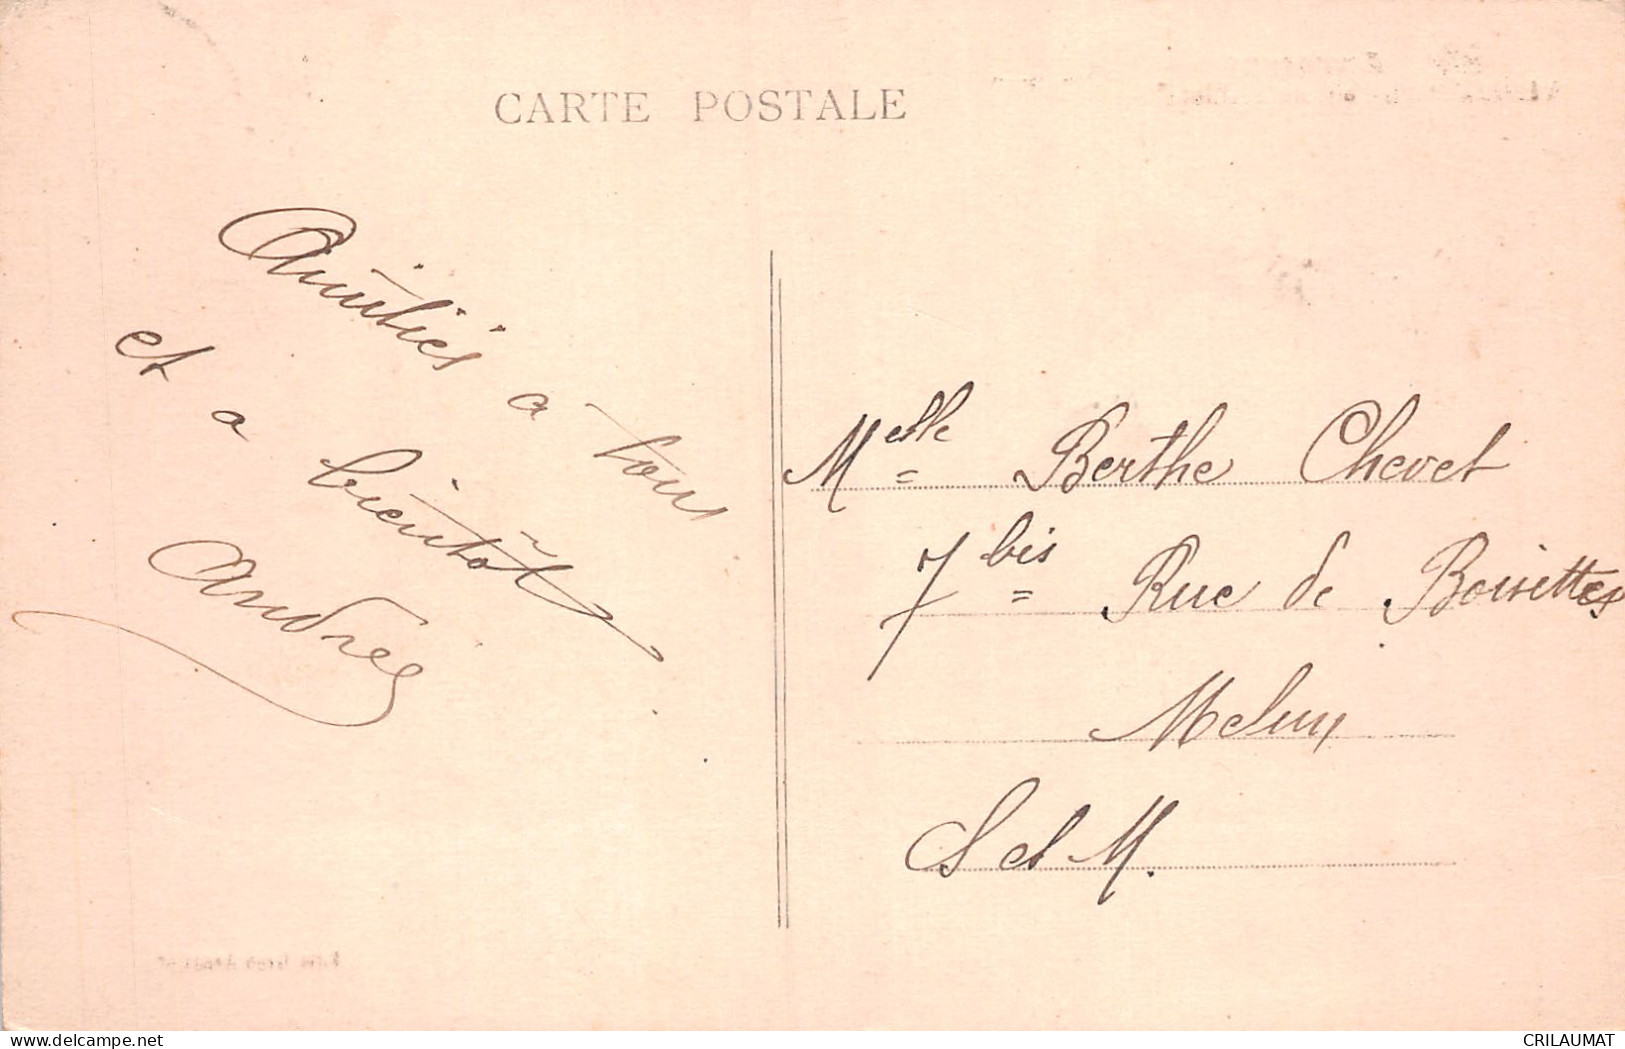 CARTE POSTALE
Amitiés a tous
et a bientôt
Andrée
Melle Berthe Chevet
7 bis Rue de Boissettes
Melun
S et M.
delcampe.net
CRILAUMAT